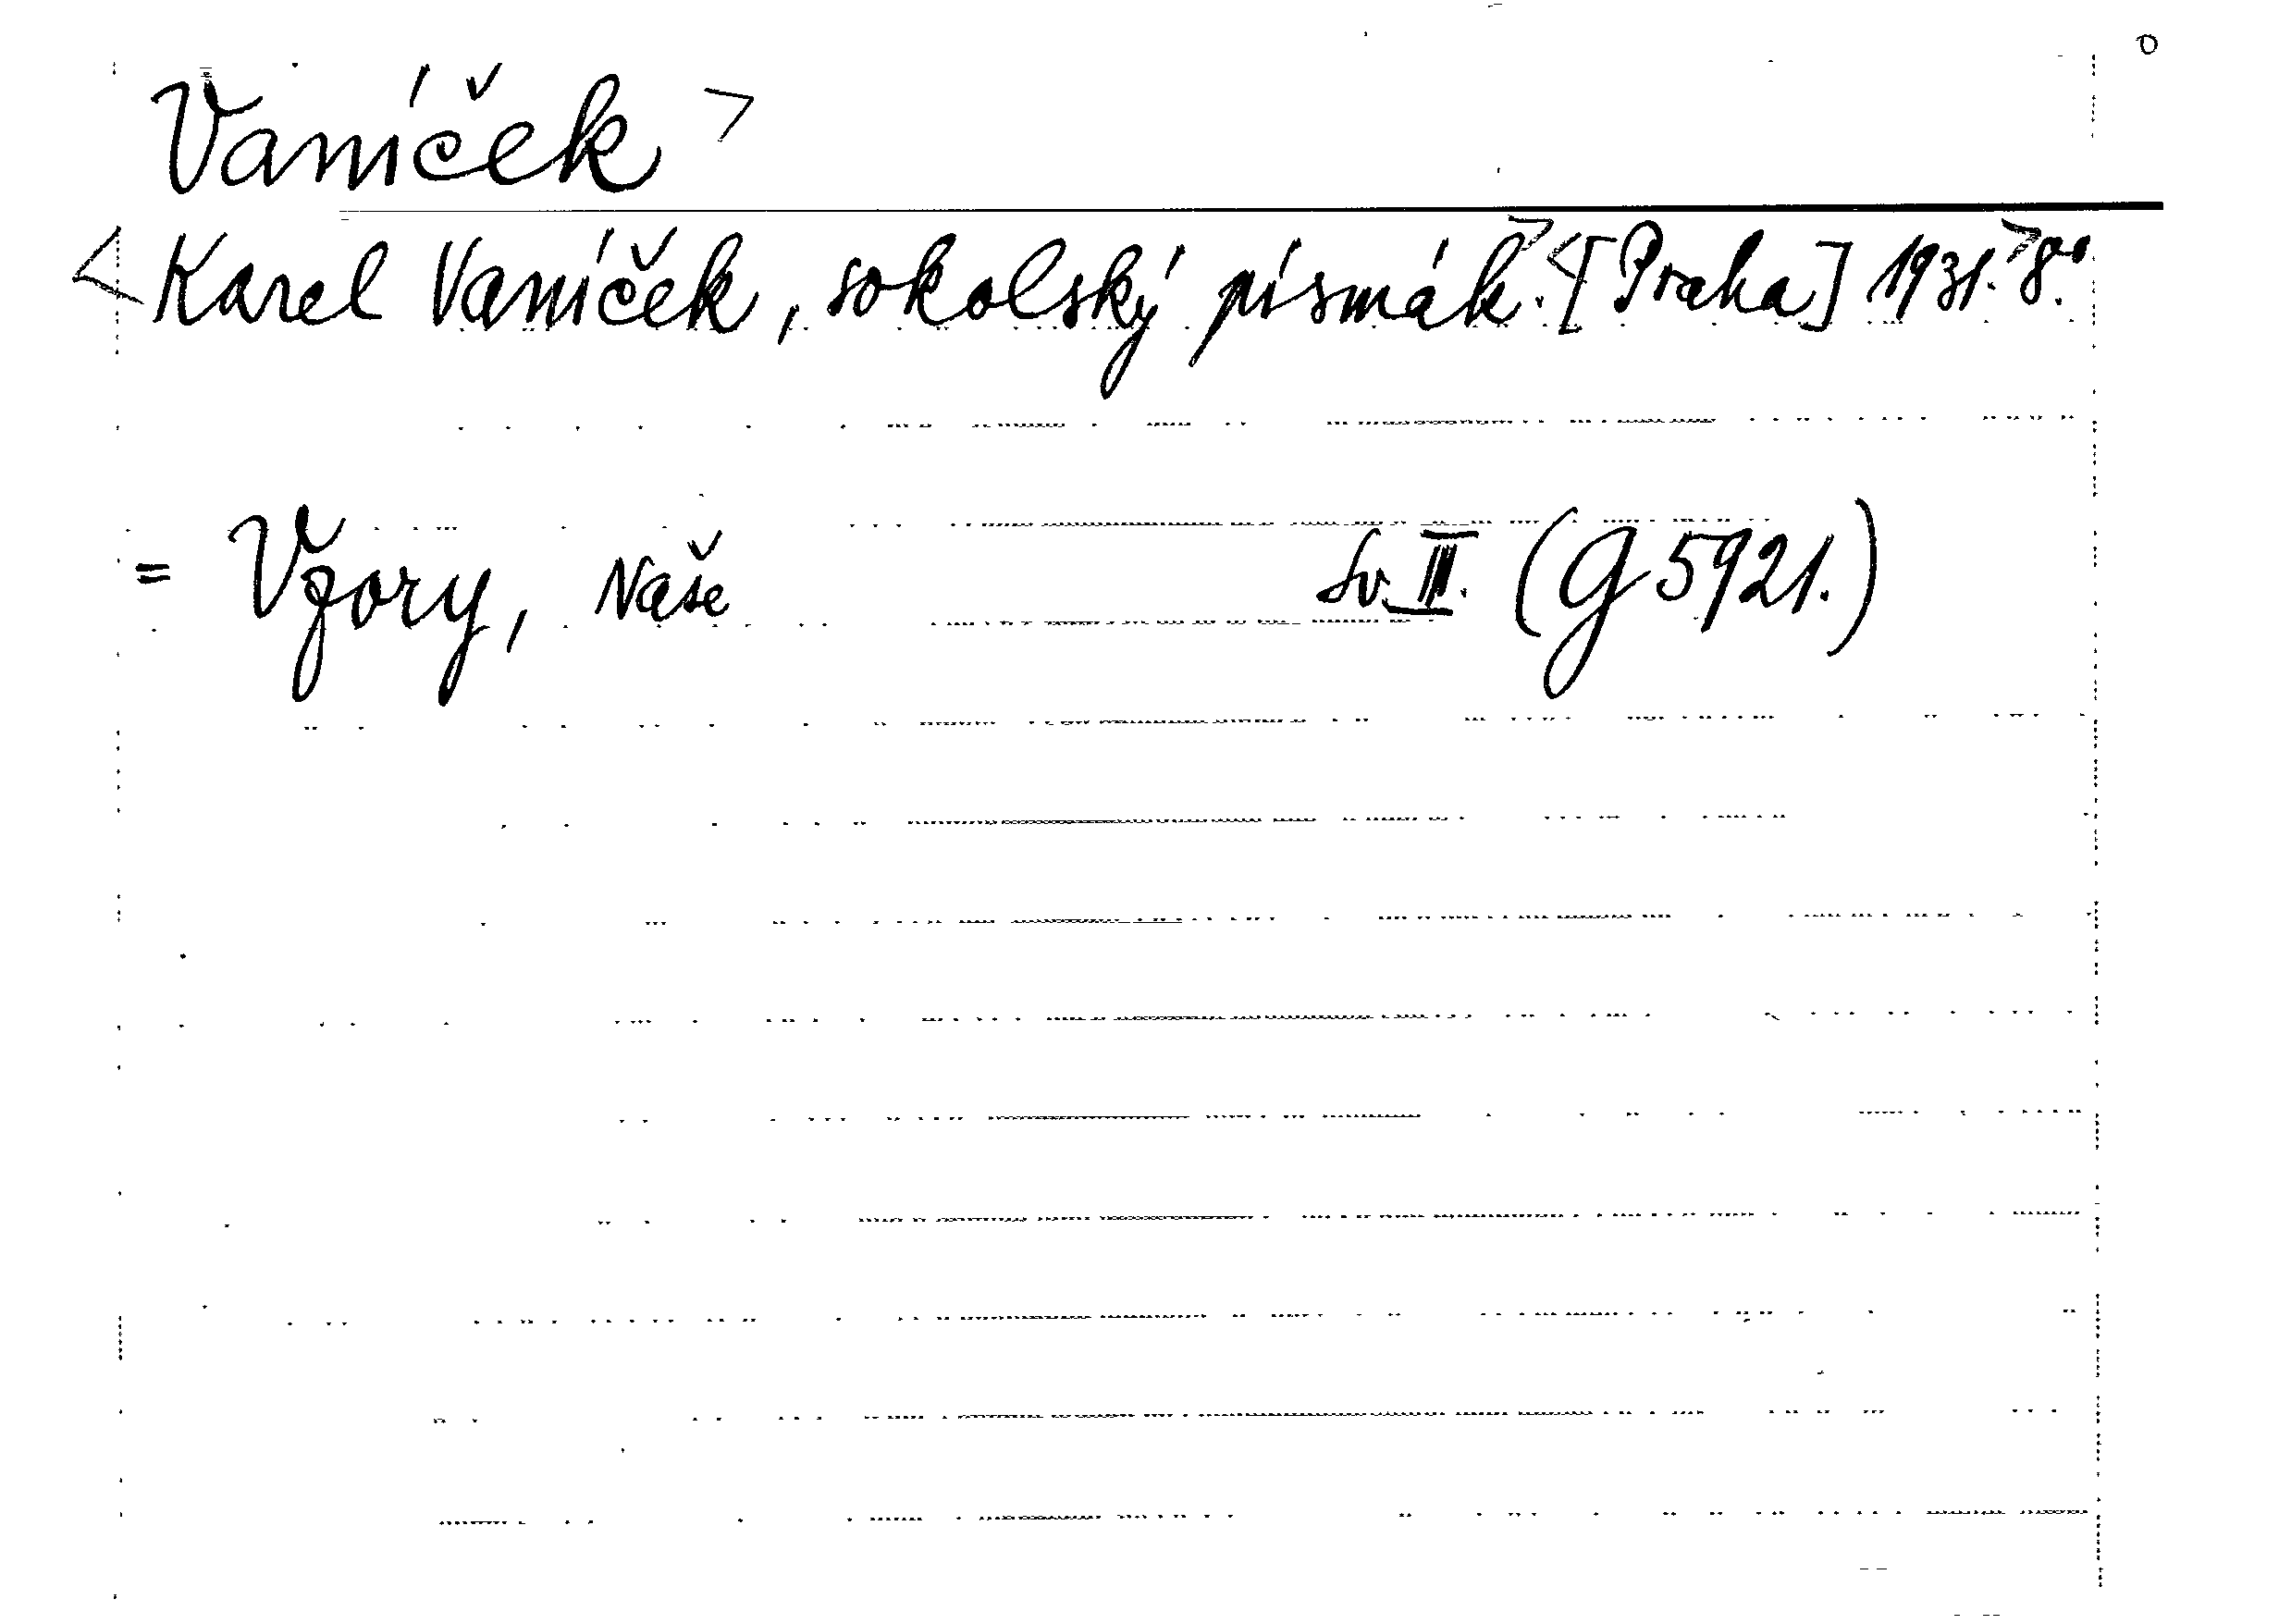 Vaníček >
< Karel Vaníček, sokolský písmák.> <[Praha] 1931.> 8°.
= Vzory, Naše Sv. III. (G 5921.)